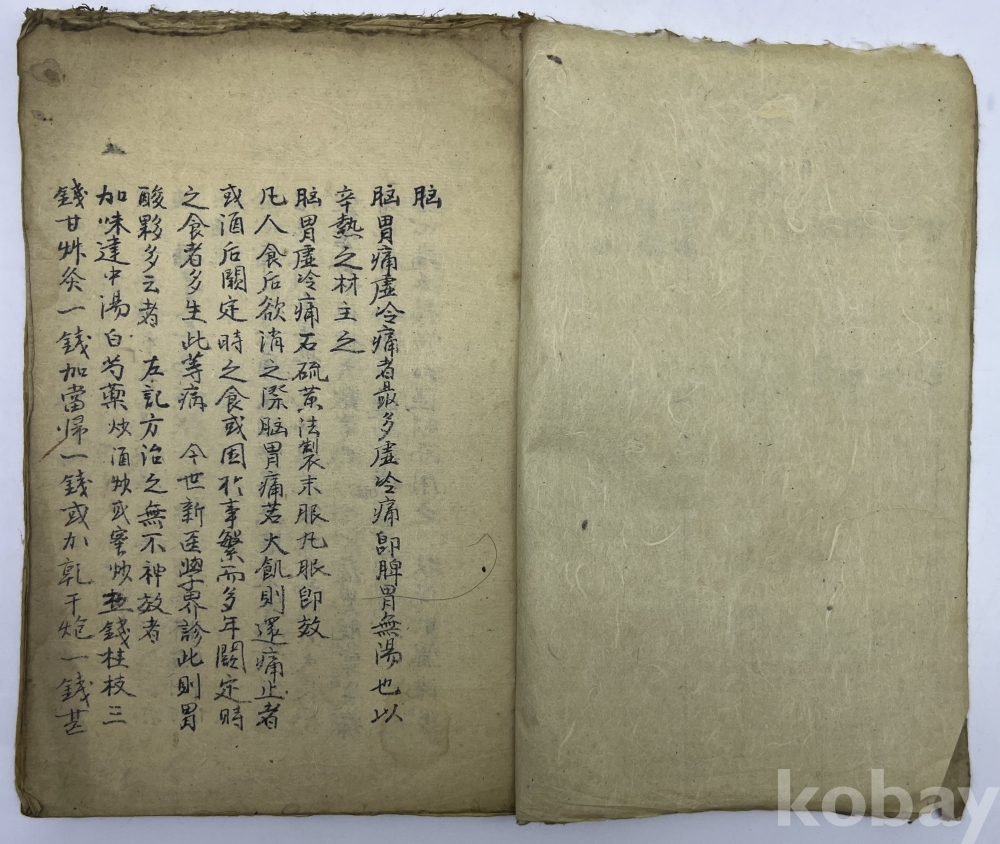 脳
脳胃痛虛冷痛者最多虛冷痛卽脾胃無湯也以
辛熱之材主之
脳胃虛冷痛石硫黃法製末服丸服卽效
凡人食后欲消之際脳胃痛若大飢則還痛止者
或酒后闕定時之食或困於事繁而多年闕定時
之食者多生此等病 今世新医學界診此則胃
酸夥多云者 左記方治之無不神效者
加味建中湯白芍藥炒酒炒或蜜炒五錢桂枝三
錢甘艸灸一錢加當歸一錢或加乾干炮一錢甚
kobay